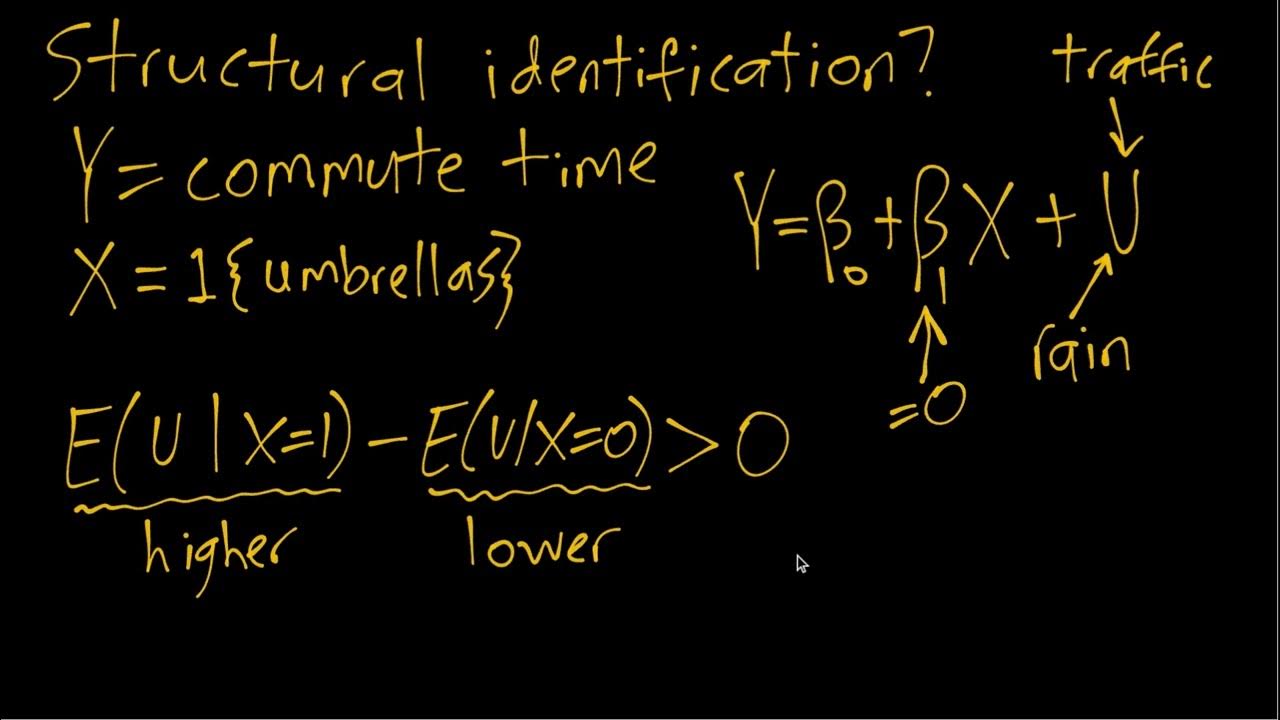 Structural identification?
traffic
Y = commute time
Y = β₀ + β₁X + U
X = 1{umbrellas}
rain
=0
E(U | X=1) - E(U|X=0) > 0
higher
lower